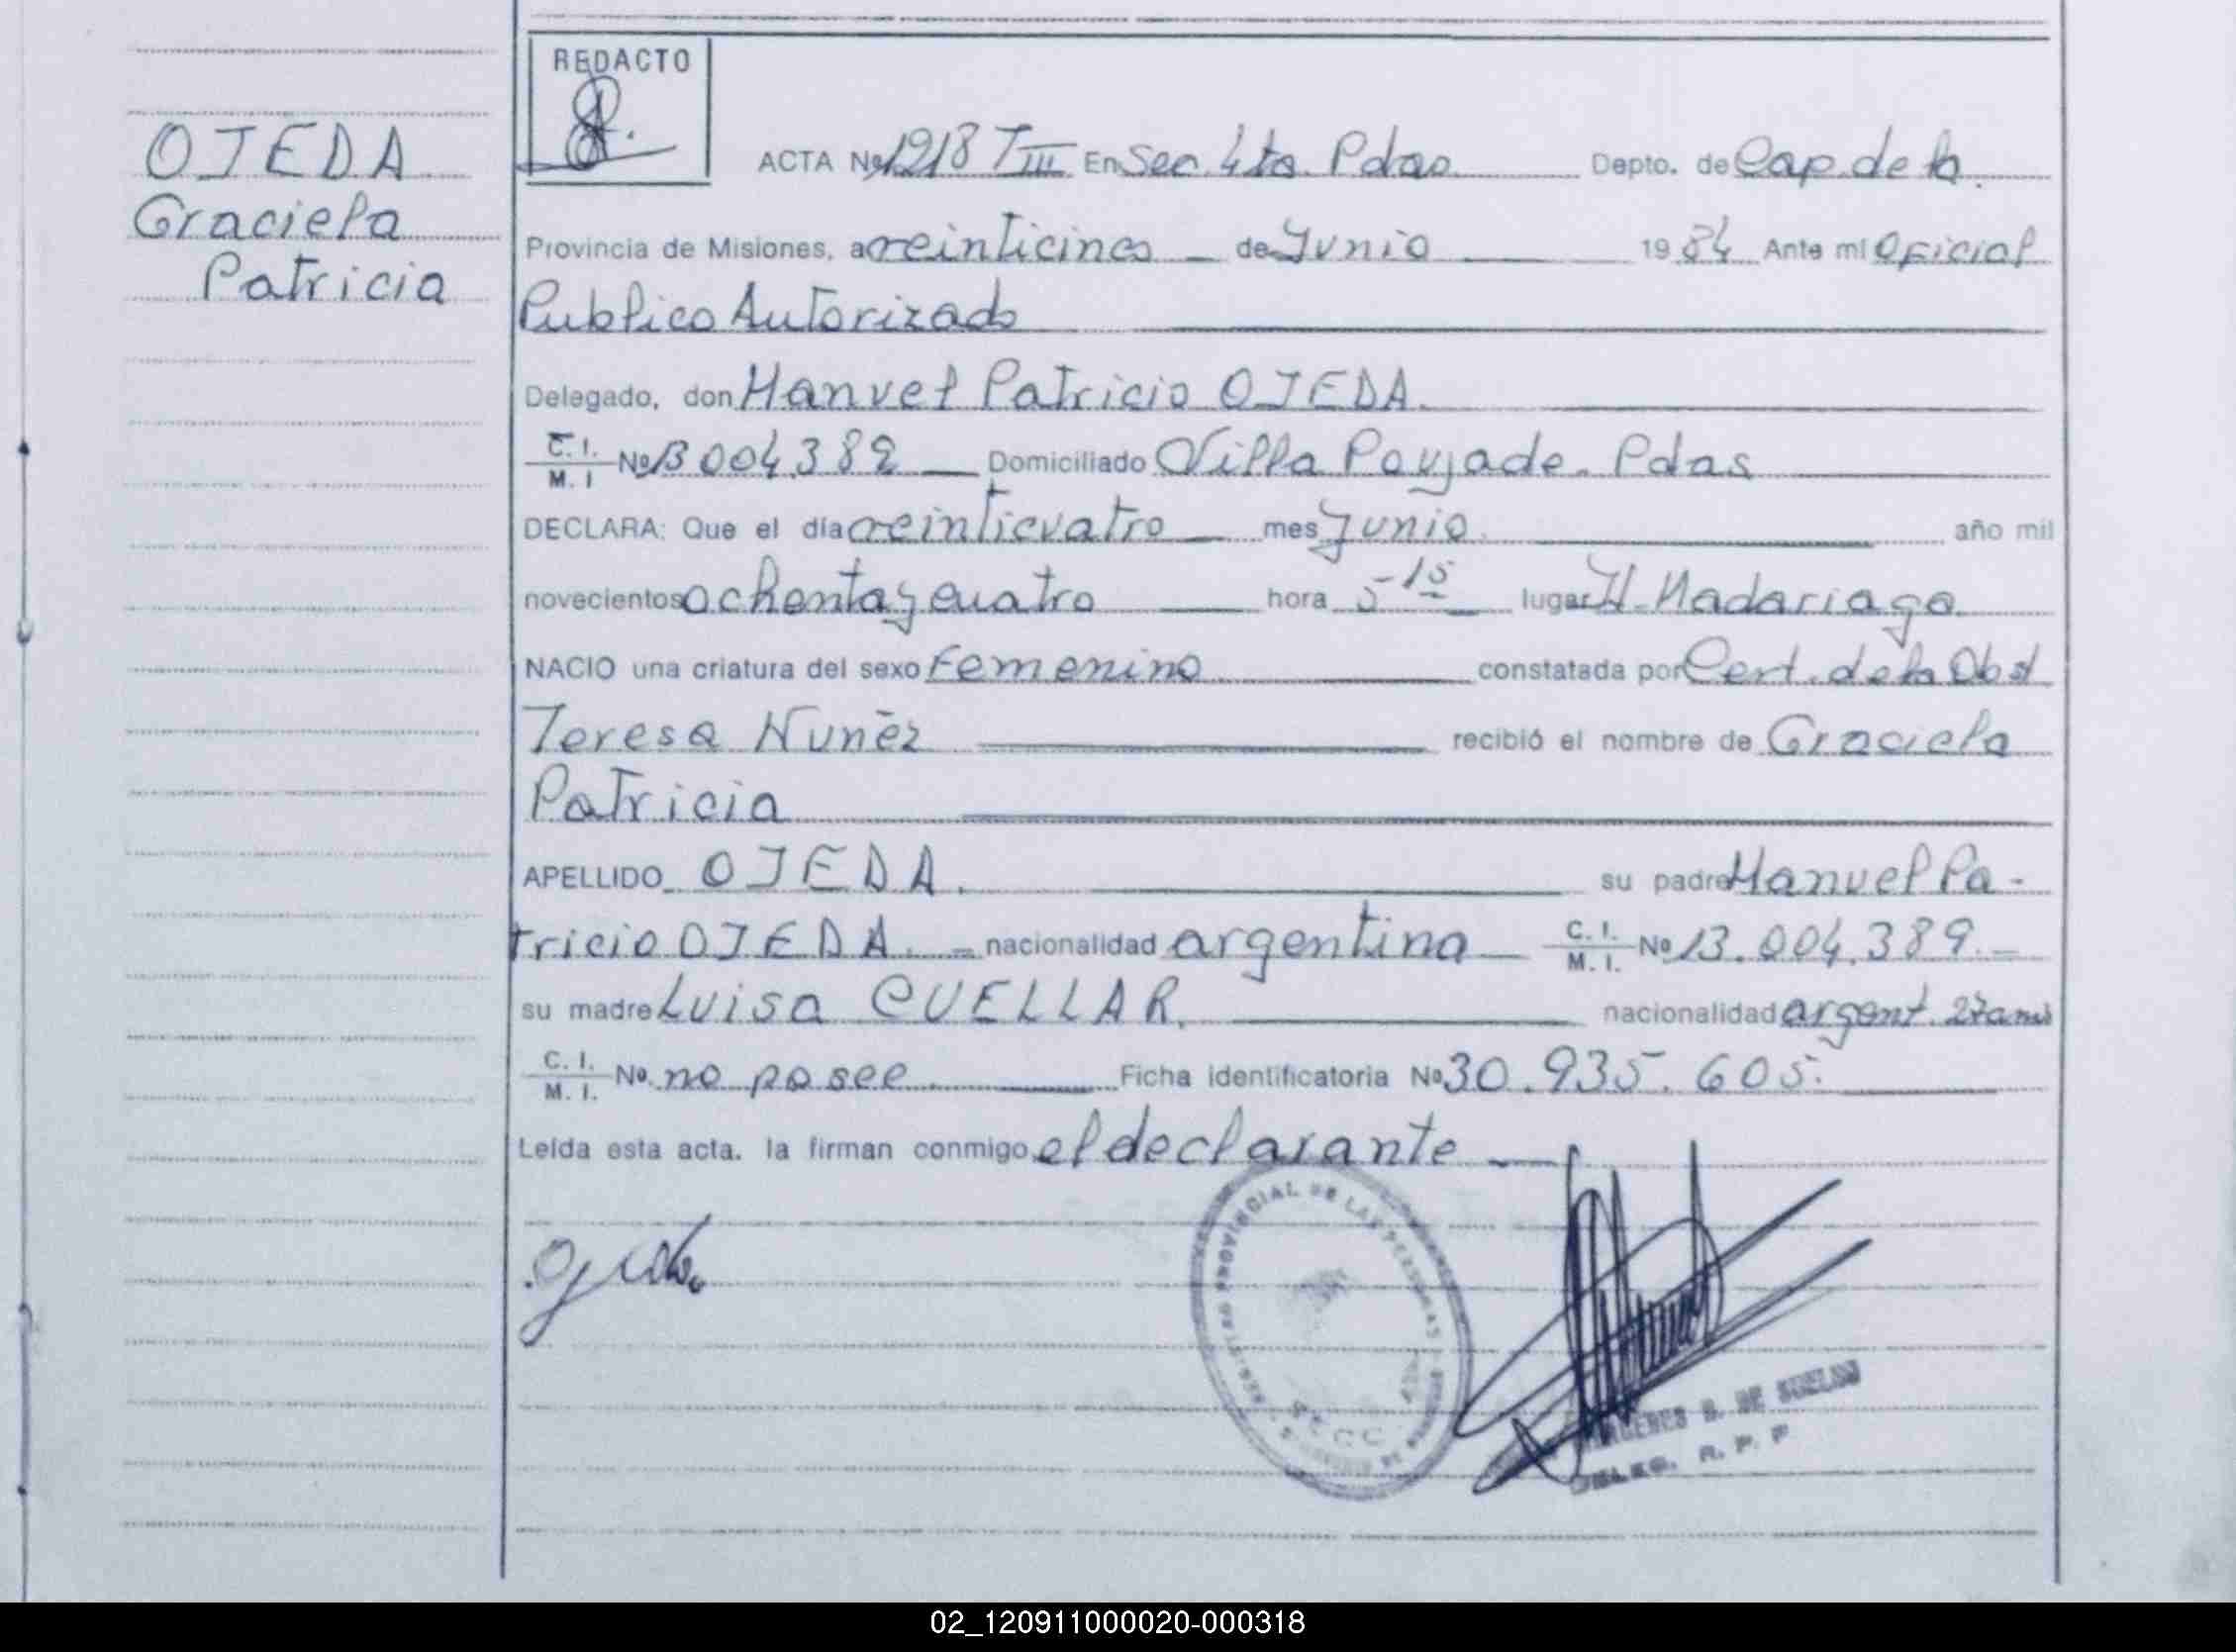 REDACTO
OJEDA
Graciela
Patricia
ACTA Nº 1218 T III En Sec. 4ta. Pdas. Depto. de Cap. de la
Provincia de Misiones, a veinticinco de Junio 1984 Ante mi Oficial
Publico Autorizado
Delegado, don Manuel Patricio OJEDA.
C. I. / M. I Nº 13004.389 Domiciliado Villa Poujade. Pdas
DECLARA: Que el día veinticuatro mes Junio. año mil
novecientos ochenta y cuatro hora 5-15 lugar H. Madariaga.
NACIO una criatura del sexo Femenino constatada por Cert. de la Obst
Teresa Nuñez recibió el nombre de Graciela
Patricia
APELLIDO OJEDA. su padre Manuel Pa-
tricio OJEDA. nacionalidad argentina C. I. / M. I. Nº 13.004.389.-
su madre Luisa CUELLAR. nacionalidad argent. 27 años
C. I. / M. I. Nº no posee Ficha identificatoria Nº 30.935.605.
Leída esta acta. la firman conmigo el declarante
Ojeda
PROVINCIAL DE LAS PERSONAS
SECC
B. DE
DELEG. R. P. P
02_120911000020-000318